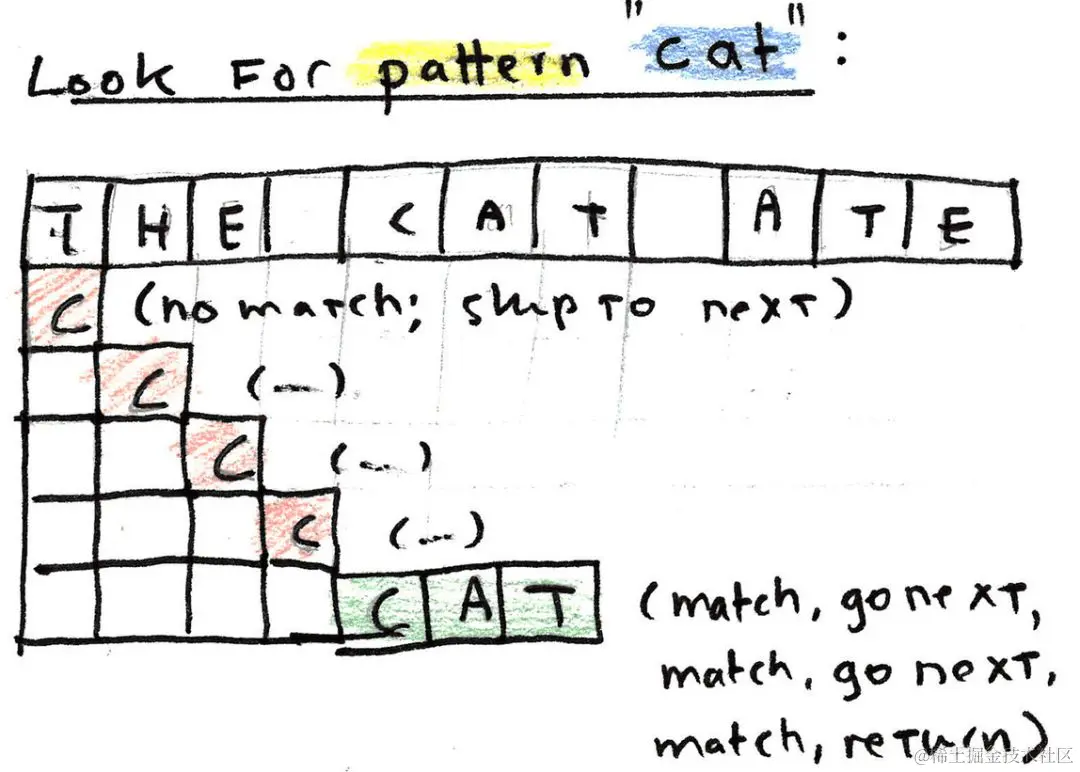 Look For pattern "cat":
T H E C A T A T E
C (no match; skip to next)
C (...)
C (...)
C (...)
C A T (match, go next,
match, go next,
match, return)
@稀土掘金技术社区